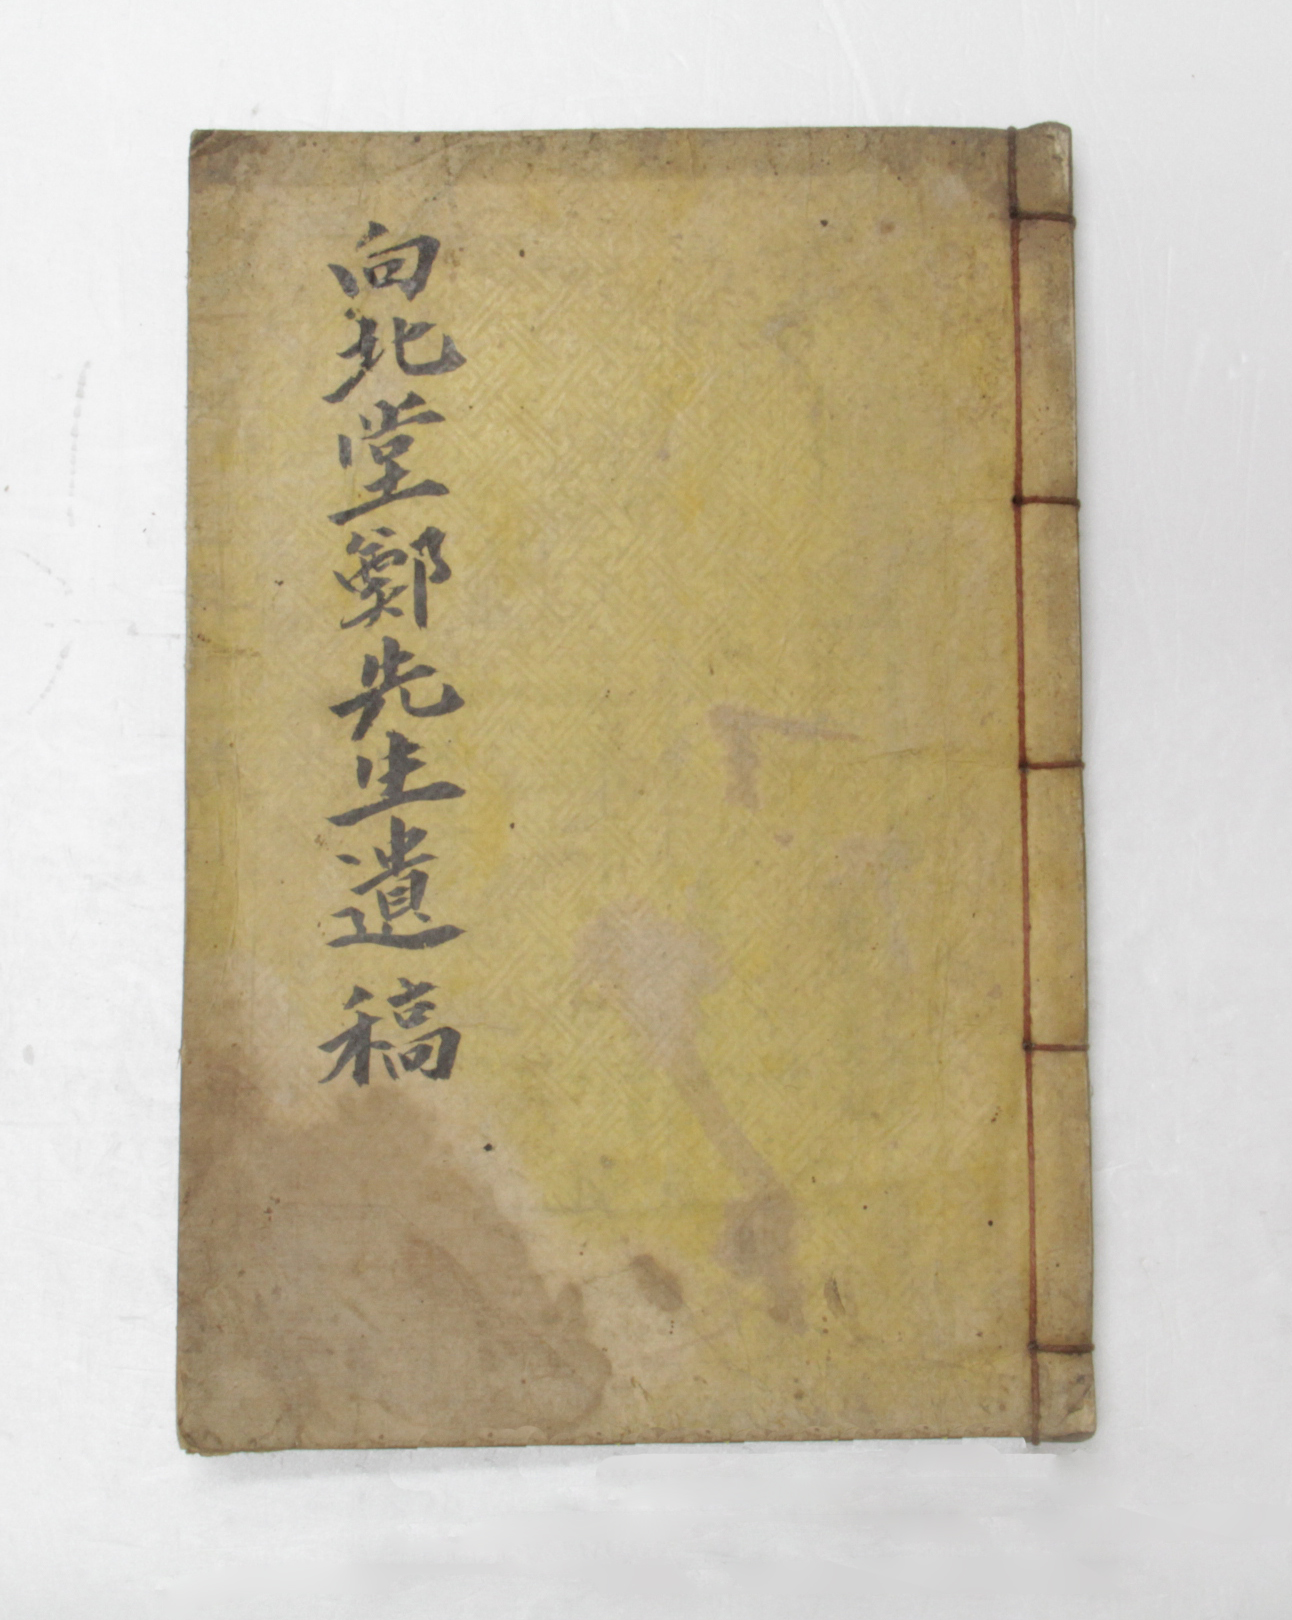 向北堂鄭先生遺稿